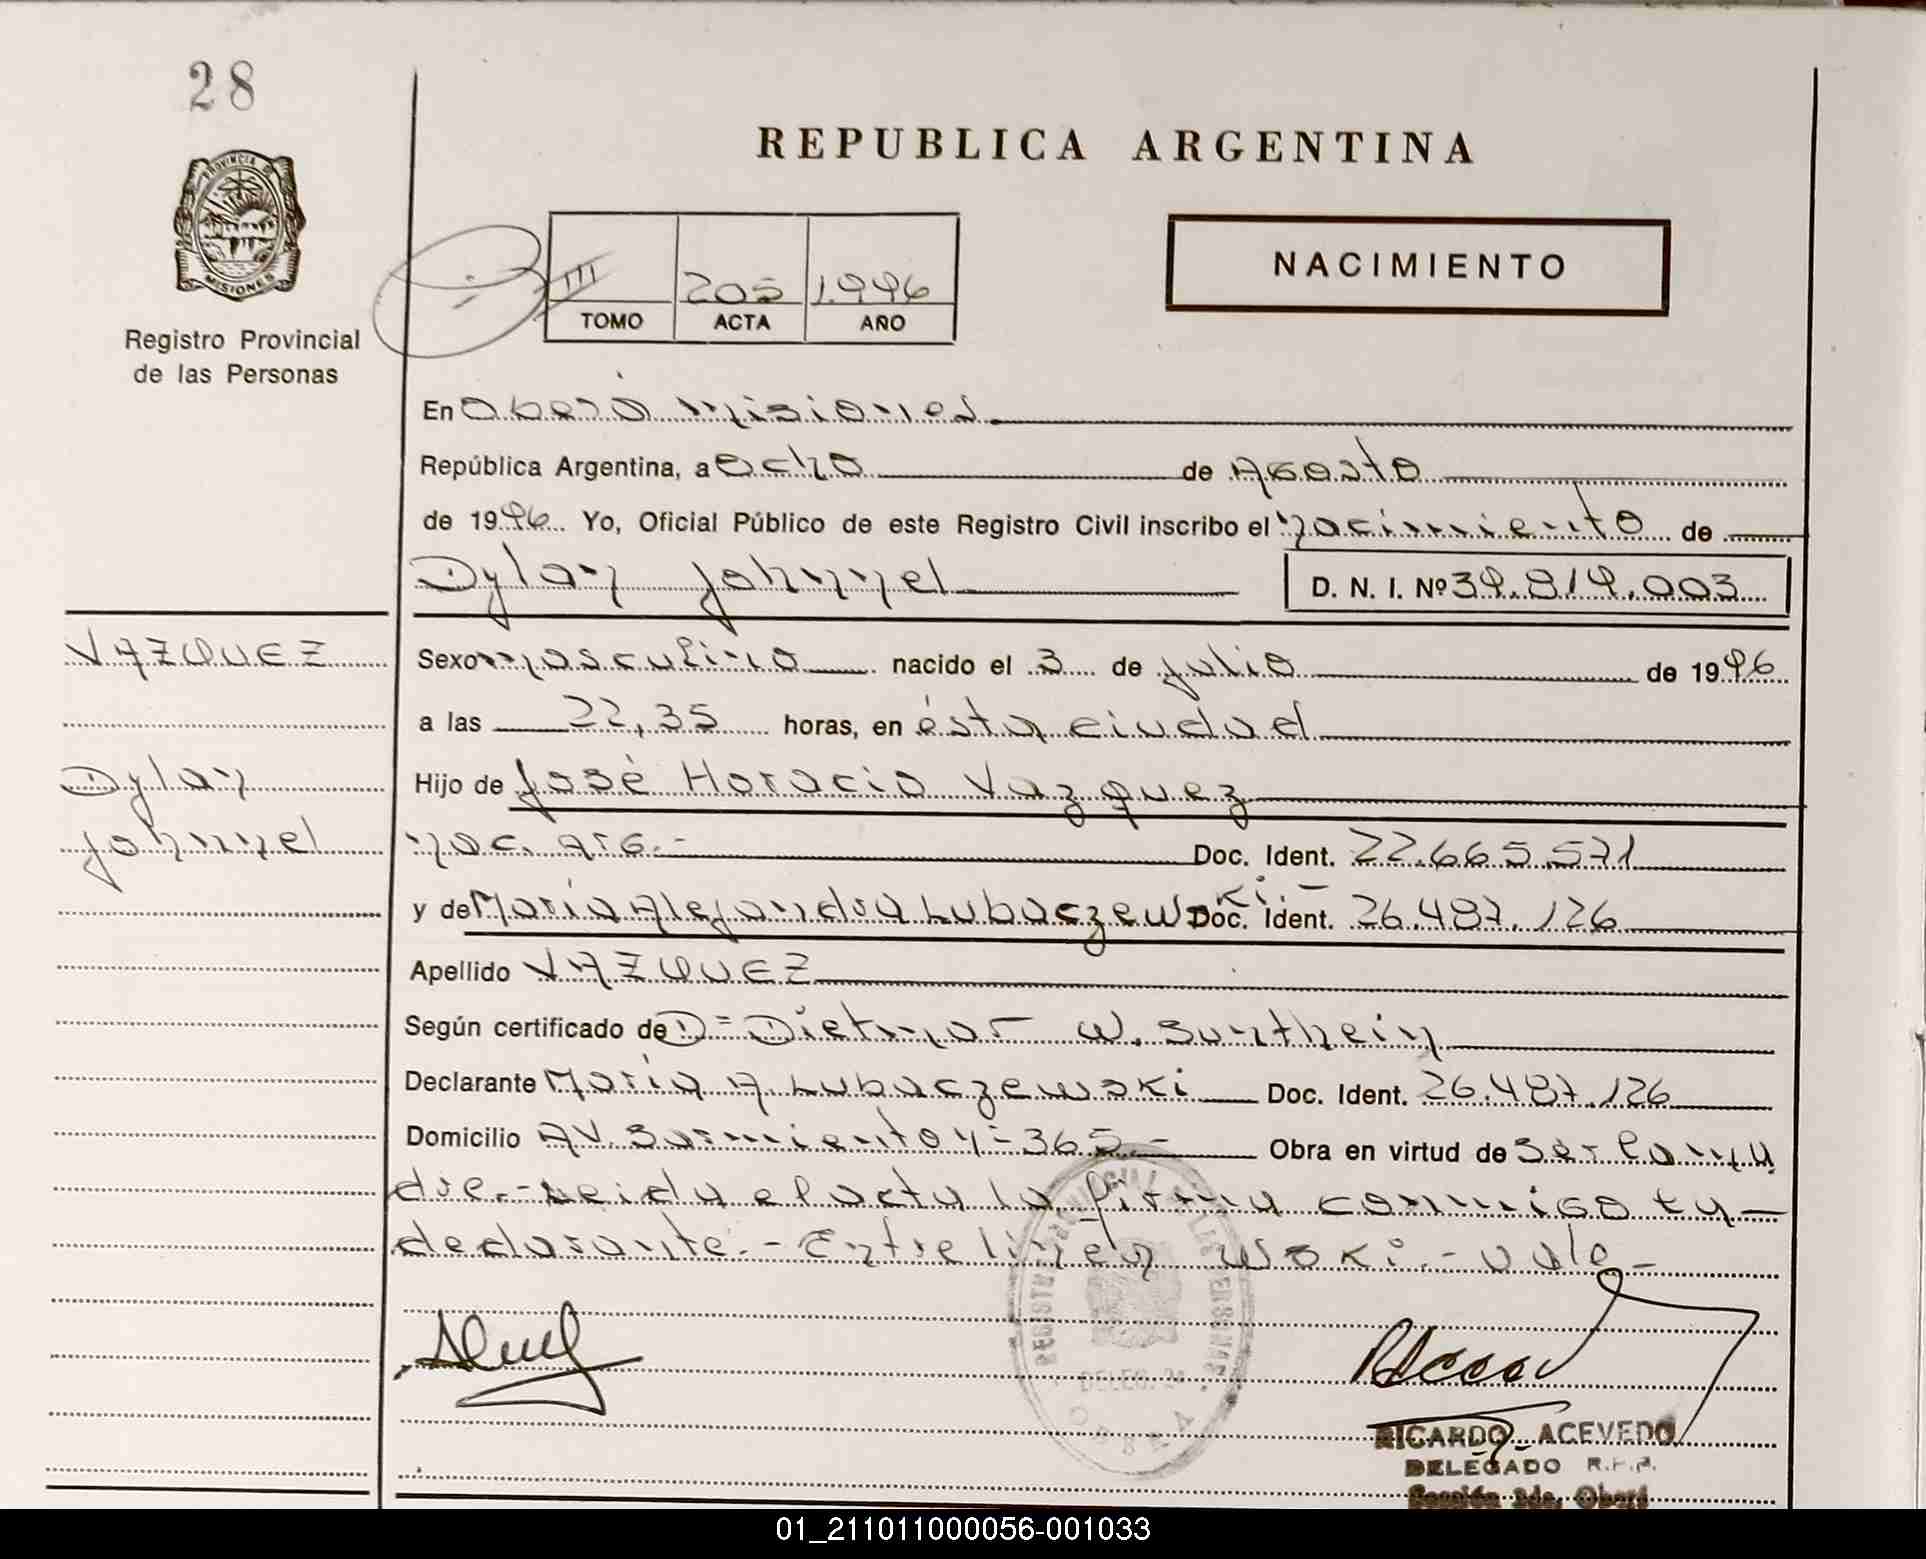 28
REPUBLICA ARGENTINA
PROVINCIA DE
MISIONES
Registro Provincial
de las Personas
III 205 1.996
TOMO ACTA AÑO
NACIMIENTO
En Oberá Misiones
República Argentina, a Ocho de Agosto
de 1996 Yo, Oficial Público de este Registro Civil inscribo el nacimiento de
Dylan Johnnel
D. N. I. Nº 39.819.003
VAZQUEZ
Sexo masculino nacido el 3 de julio de 1996
a las 22,35 horas, en ésta ciudad
Dylan
Hijo de José Horacio Vazquez
Johnnel
nac. arg.- Doc. Ident. 22.665.571
y de María Alejandra Lubaczewski.- Doc. Ident. 26.487.126
Apellido VAZQUEZ
Según certificado de D= Dietmar W. Sunthein
Declarante María A. Lubaczewski Doc. Ident. 26.487.126
Domicilio AV. Sarmiento Nº 365- Obra en virtud de ser la ma
dre.- Leída el acta la firma conmigo la
declarante.- Entre línea wski.- vale-
DELEG. 2a
OBERA
RICARDO ACEVEDO
DELEGADO R.P.P.
Sección 2da. Oberá
01_211011000056-001033